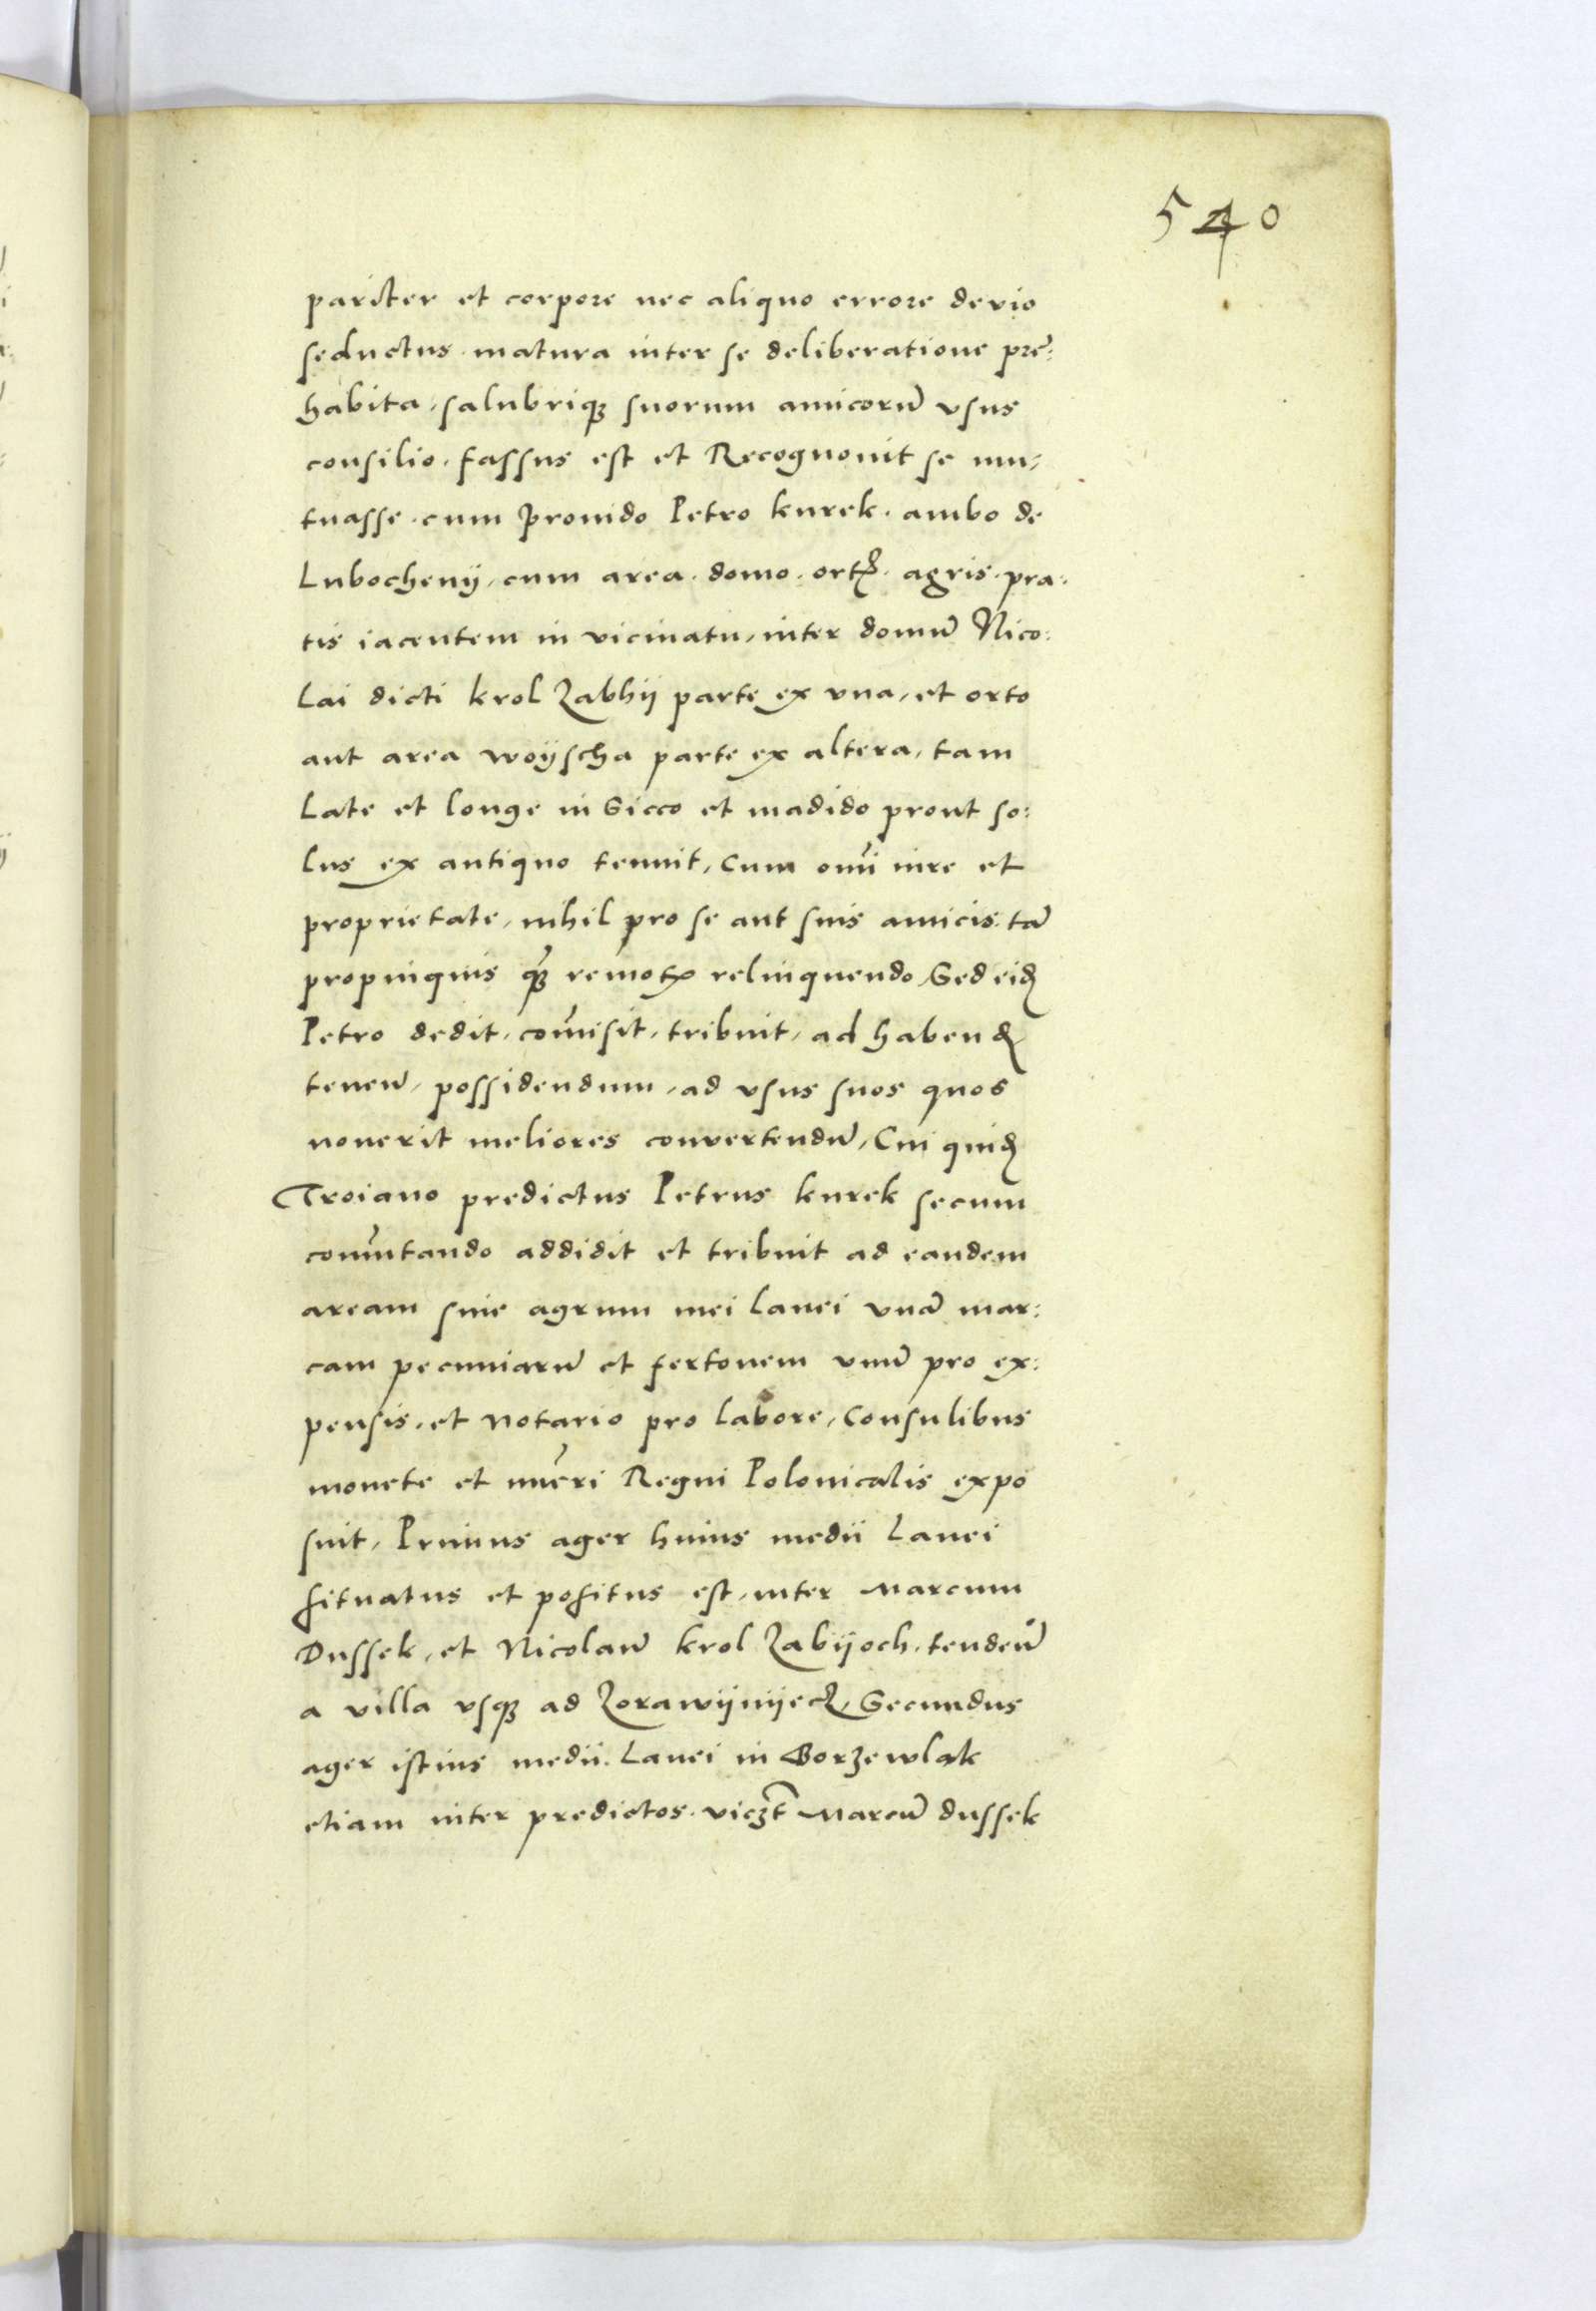 540
pariter et corpore nec aliquo errore devio
seductus. matura inter se deliberatione pre:
habita, salubriqꝫ suorum amicorū vsus
consilio. fassus est et Recognouit se mu,
tuasse. cum prouido Petro kurek. ambo de
Lubochenij, cum area. domo. ortꝭ. agris. pra:
tis iacentem in vicinatu, inter domū Nico:
Lai dicti krol Zabhij parte ex vna, et orto
aut area woijscha parte ex altera, tam
Late et longe in Sicco et madido prout so:
lus ex antiquo tenuit, Cum om̄i iure et
proprietate, nihil pro se aut suis amicis. tā
propinquis qꝫ remotꝭ relinquendo, Sed eid
Petro dedit, com̄isit, tribuit, ad habend
teneū, possidendum, ad vsus suos quos
nouerit meliores convertendū, Cui quid
Troiano predictus Petrus kurek secum
com̄utando addidit et tribuit ad eandem
aream siue agrum mei Lanei vnā mar:
cam pecuniarū et fertonem vnū pro ex:
pensis, et notario pro Labore, Consulibus
monete et nūeri Regni Polonicalis expo
suit, Primus ager huius medii Lanei
situatus et positus est, inter Marcum
Dussek, et Nicolaū krol Zabijoch. tendeū
a villa vsqꝫ ad Zorawijnijecz, Secundus
ager istius medii. Lanei in Borzewlak
etiam inter predictos. viczt Marcū dussek